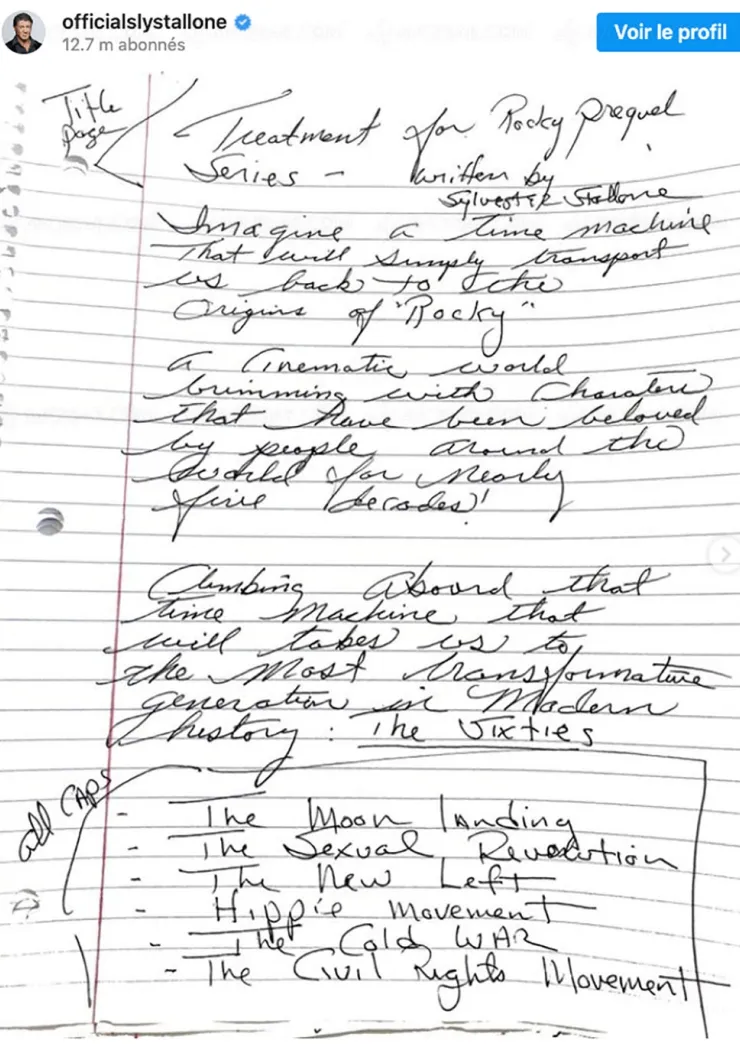 officialslystallone
12.7 m abonnés
Voir le profil
Title
page
Treatment for Rocky prequel
Series - written by
Sylvester Stallone
Imagine a time machine
That will simply transport
us back to the
Origins of "Rocky"
A Cinematic world
brimming with Charaters
that have been beloved
by people around the
world for nearly
five decades!
Climbing aboard that
time machine that
will takes us to
the most transformative
generation in Modern
history: The Sixties
all CAPS
- The Moon landing
- The Sexual Revolution
- The New Left
- Hippie Movement
- The Cold WAR
- The Civil Rights Movement